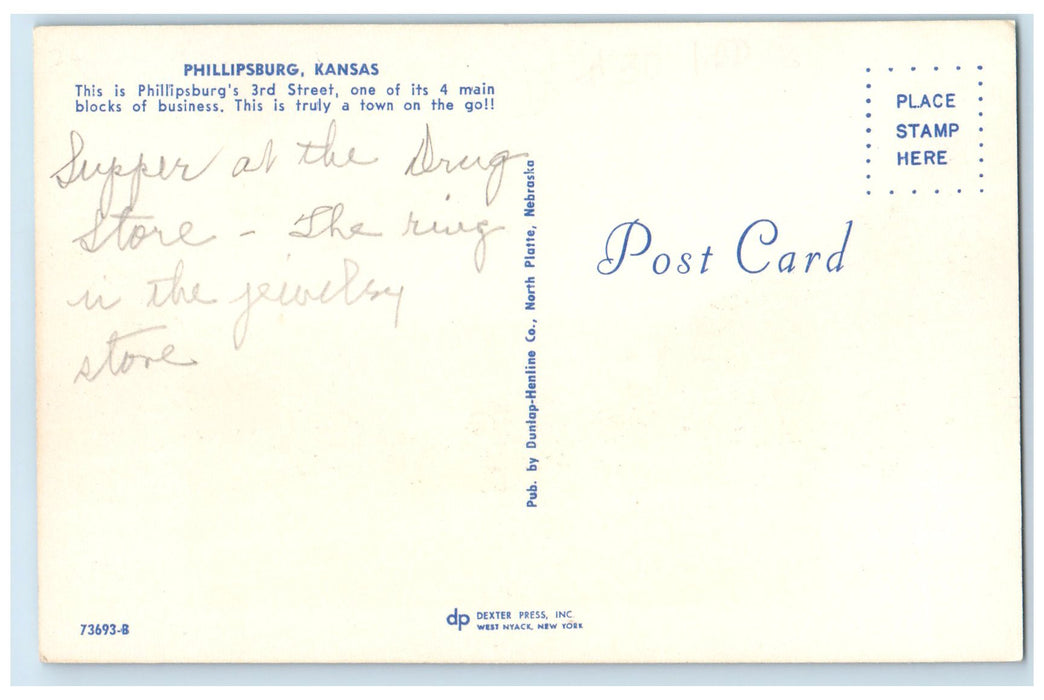 PHILLIPSBURG, KANSAS
This is Phillipsburg's 3rd Street, one of its 4 main
blocks of business. This is truly a town on the go!!
Supper at the Drug
Store - The ring
in the jewelry
store
Pub. by Dunlap-Henline Co., North Platte, Nebraska
PLACE
STAMP
HERE
Post Card
73693-B
dp DEXTER PRESS, INC.
WEST NYACK, NEW YORK